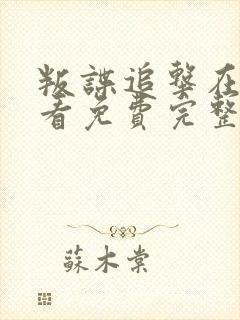 叛諜追擊在
看免費完整
蘇木棠